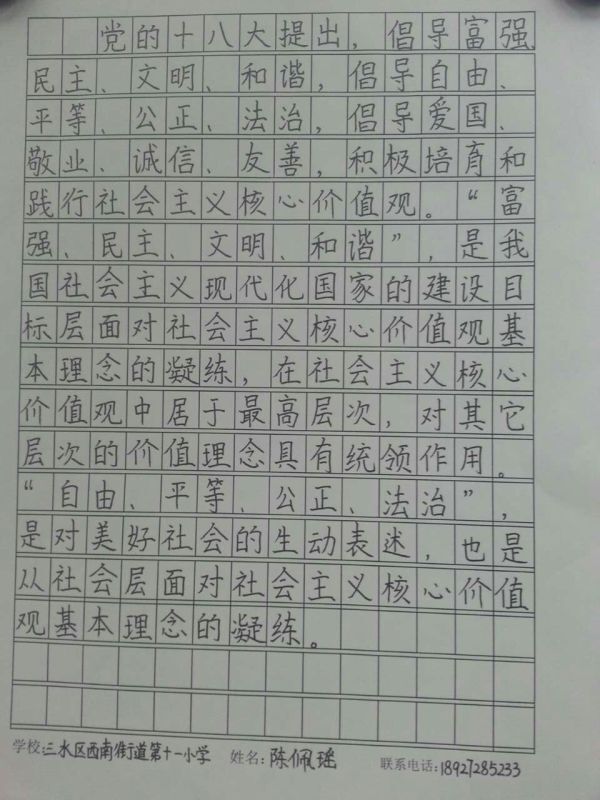 党的十八大提出，倡导富强、
民主、文明、和谐，倡导自由、
平等、公正、法治，倡导爱国、
敬业、诚信、友善，积极培育和
践行社会主义核心价值观。“富
强、民主、文明、和谐”，是我
国社会主义现代化国家的建设目
标层面对社会主义核心价值观基
本理念的凝练，在社会主义核心
价值观中居于最高层次，对其它
层次的价值理念具有统领作用。
“自由、平等、公正、法治”，
是对美好社会的生动表述，也是
从社会层面对社会主义核心价值
观基本理念的凝练。
学校:三水区西南街道第十一小学 姓名:陈佩瑶 联系电话:18927285233